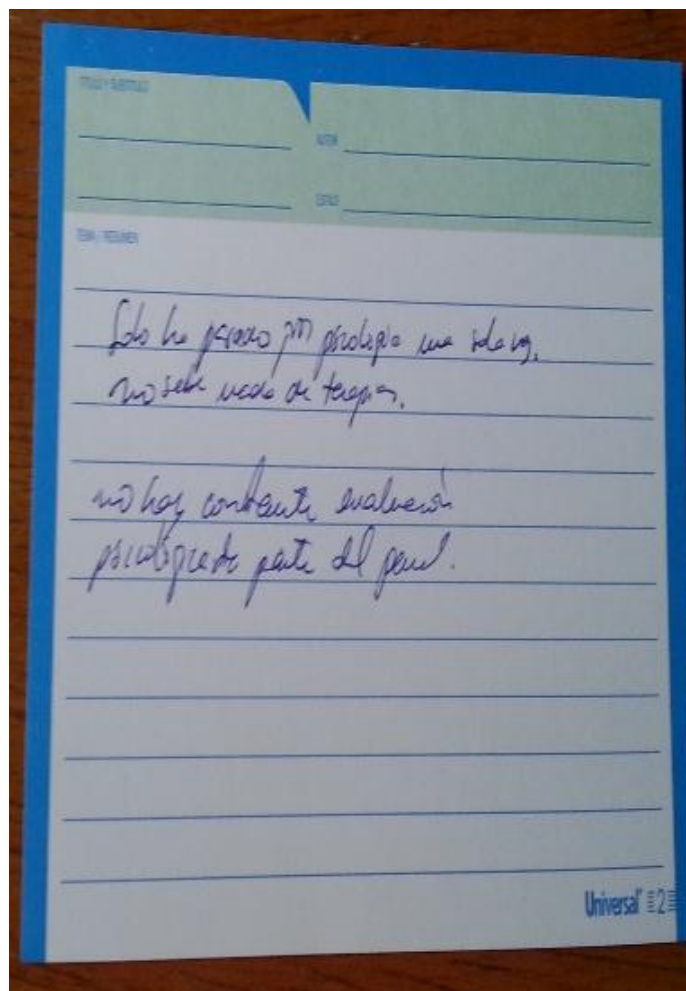 TITULO Y SUBTITULO
AUTOR
ESTILO
TEMA / RESUMEN
Solo ha pasado por psicología una sola vez.
no sabe nada de terapias.
no hay constante evaluación
psicológica de parte del penal.
Universal 2